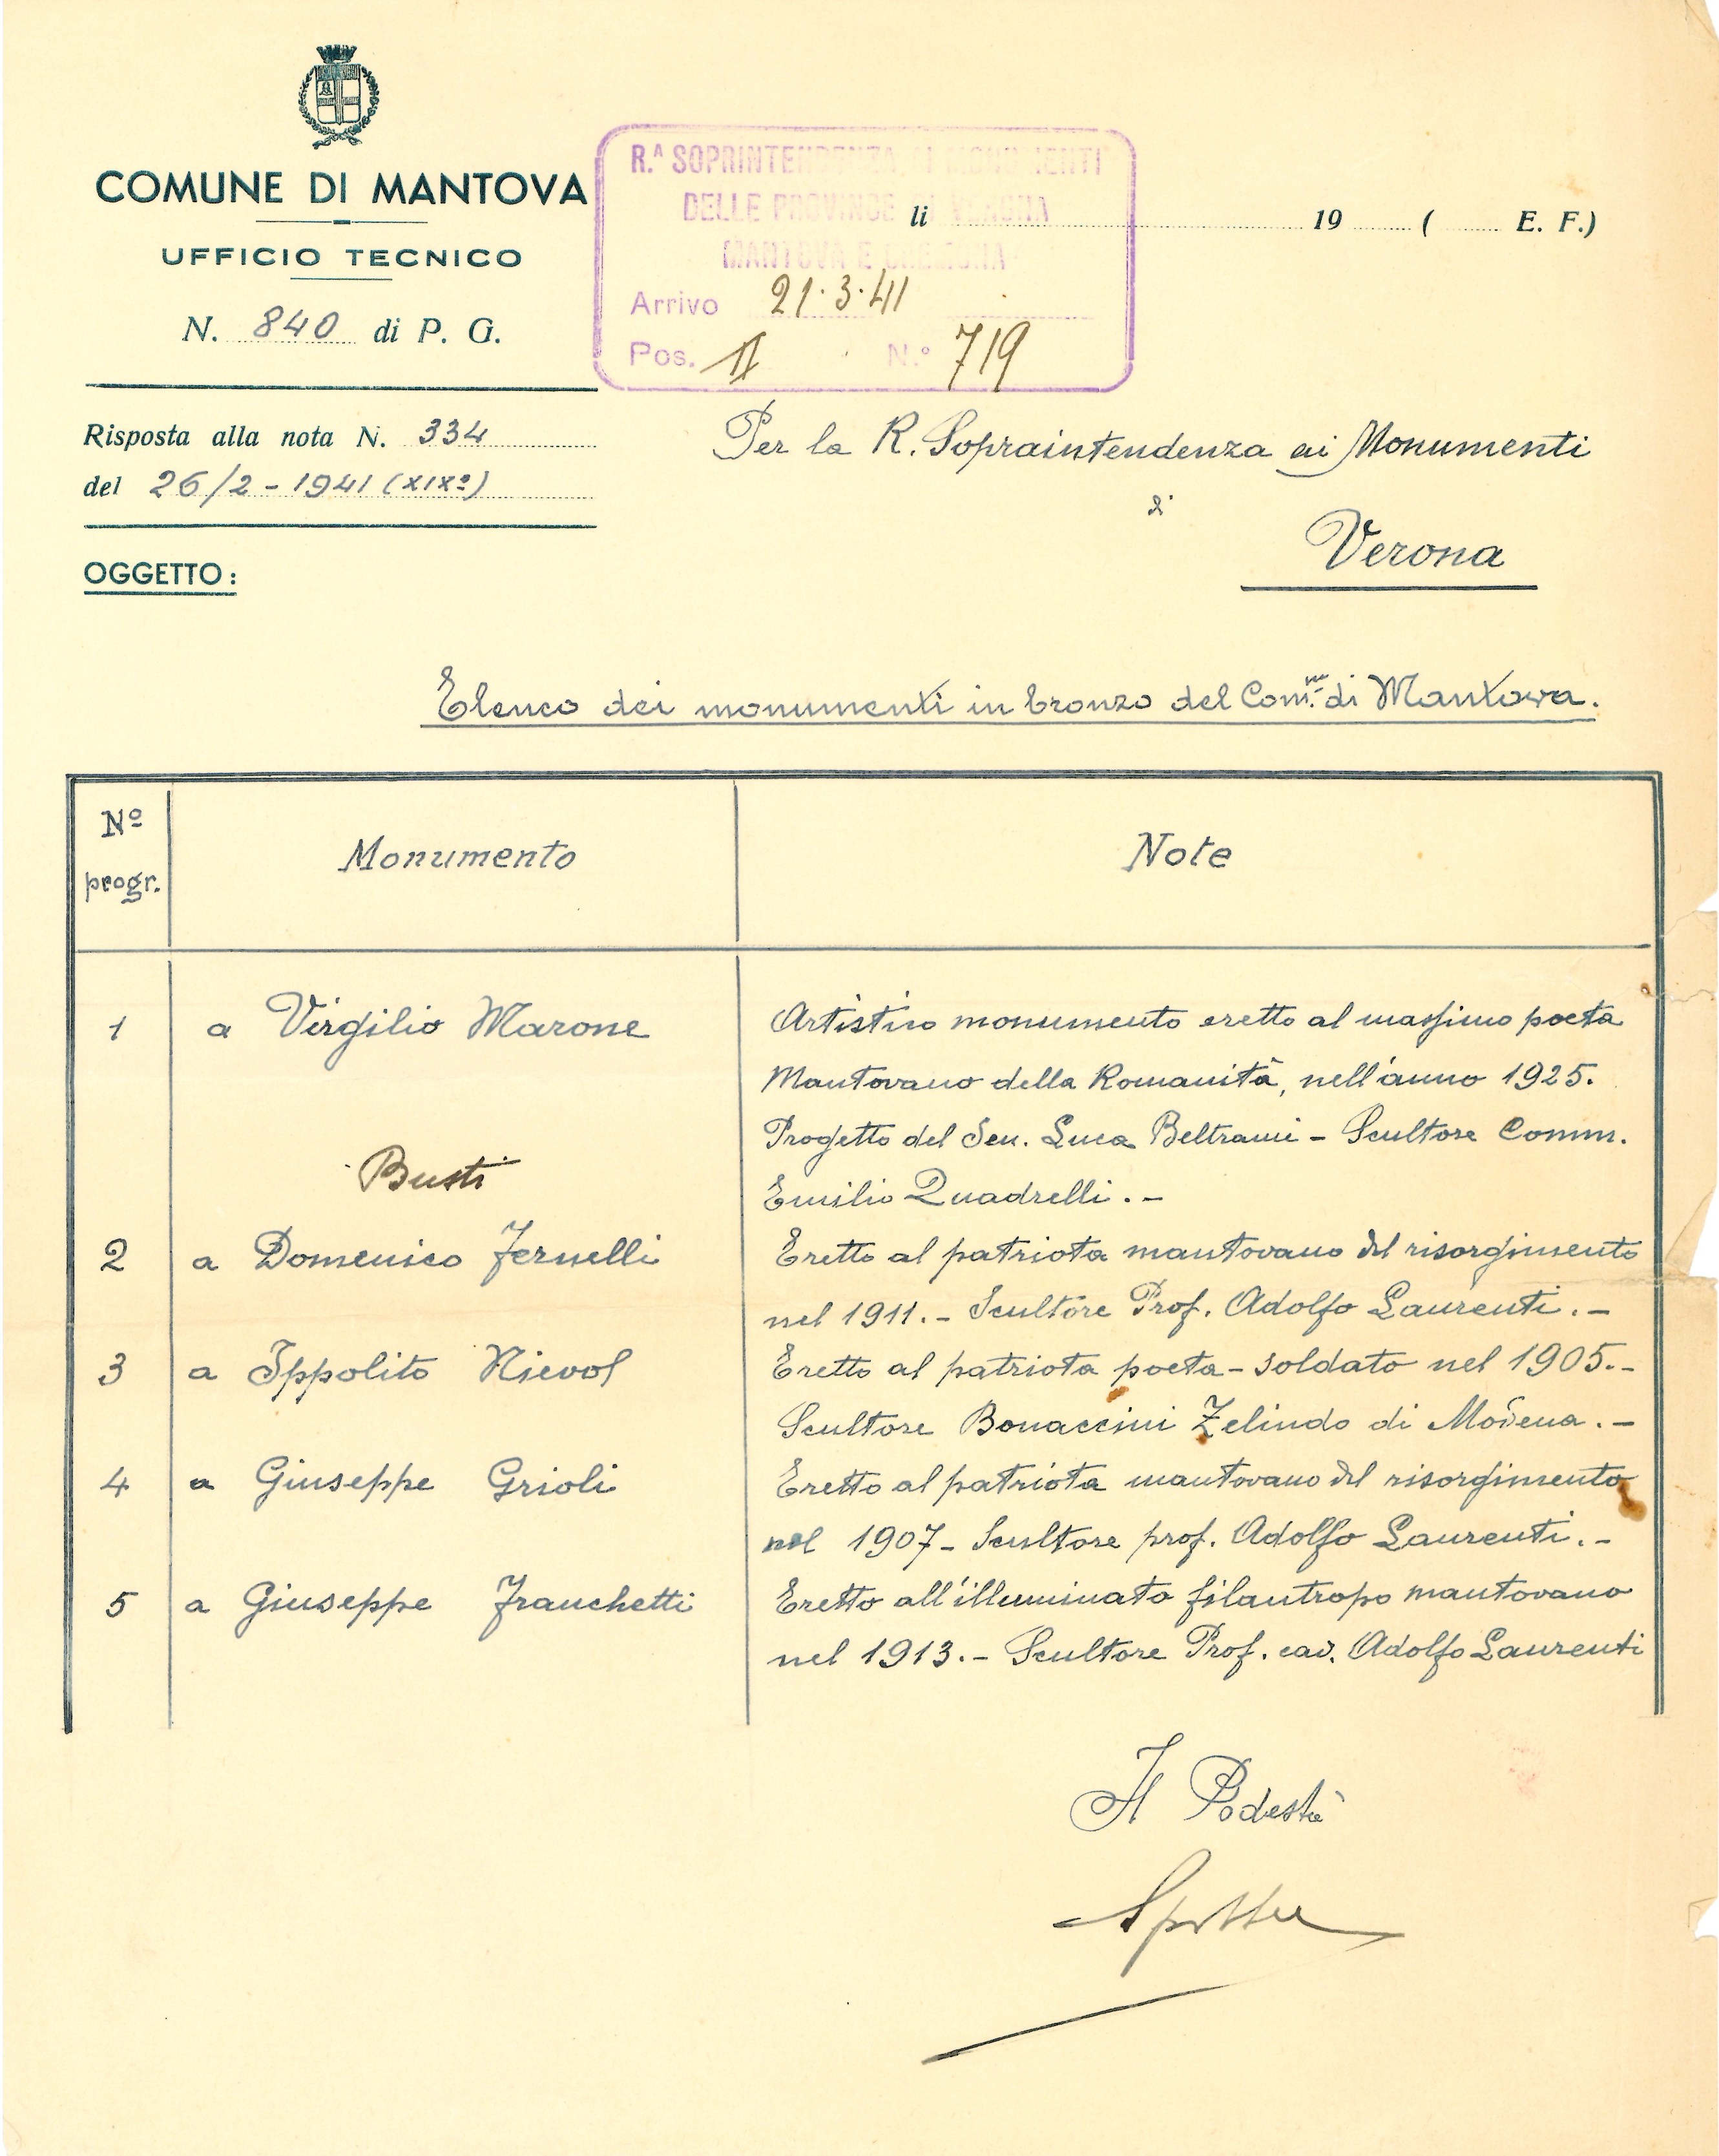 COMUNE DI MANTOVA
UFFICIO TECNICO
N. 840 di P. G.
R.A SOPRINTENDENZA AI MONUMENTI
DELLE PROVINCE DI VERONA
MANTOVA E CREMONA
Arrivo 21.3.41
Pos. N.° 719
li 19 ( E. F.)
Risposta alla nota N. 334
del 26/2-1941 (XIXº)
OGGETTO:
Per la R. Sopraintendenza ai Monumenti
di
Verona
Elenco dei monumenti in bronzo del Com.ne di Mantova.
Nº progr.
Monumento
Note
1 a Virgilio Marone
Artistico monumento eretto al massimo poeta
Mantovano della Romanità, nell'anno 1925.
Progetto del Sen. Luca Beltrami - Scultore Comm.
Emilio Quadrelli. -
Busti
2 a Domenico Fernelli
Eretto al patriota mantovano del risorgimento
nel 1911. - Scultore Prof. Adolfo Laurenti. -
3 a Ippolito Nievol
Eretto al patriota poeta - soldato nel 1905. -
Scultore Bonaccini Zelindo di Modena. -
4 a Giuseppe Grioli
Eretto al patriota mantovano del risorgimento
nel 1907 - Scultore prof. Adolfo Laurenti. -
5 a Giuseppe Franchetti
Eretto all'illuminato filantropo mantovano
nel 1913. - Scultore Prof. cav. Adolfo Laurenti
Il Podestà